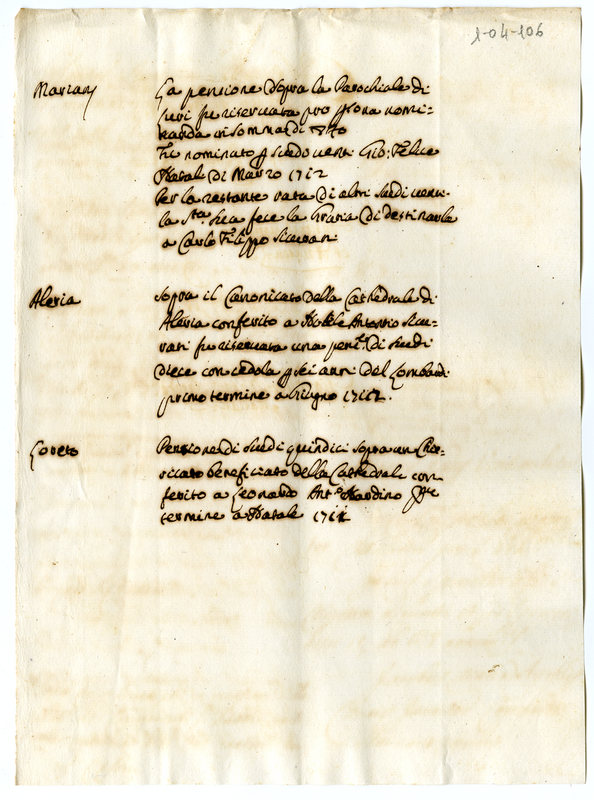 1-04-106
La pensione sopra la Parochiale di
fu riservata pro psona nomi=
nanda in somma di
Fu nominato p scudi venti Gio: Felice
Natali di Marzo 1712
Per la restante rata di altri scudi venti
la Sta. Sua fece la Grazia di destinarla
a Carlo Filippo
Aleria
sopra il Canonicato della Cathedrale di
Aleria conferito a Natale Antonio
fu riservata una pens. di scudi
diece con cedola p sei anni del Lombardi
primo termine a Giugno
Loreto
Pensione di scudi quindici sopra un Chie=
ricato beneficiato della Cathedrale con=
ferito a Leonardo Anto. Nardino
termine a Natale